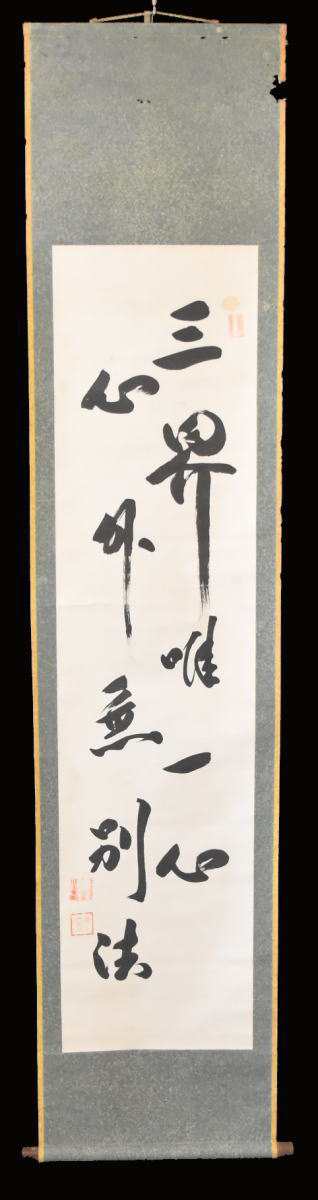 三界唯一心
心外無別法